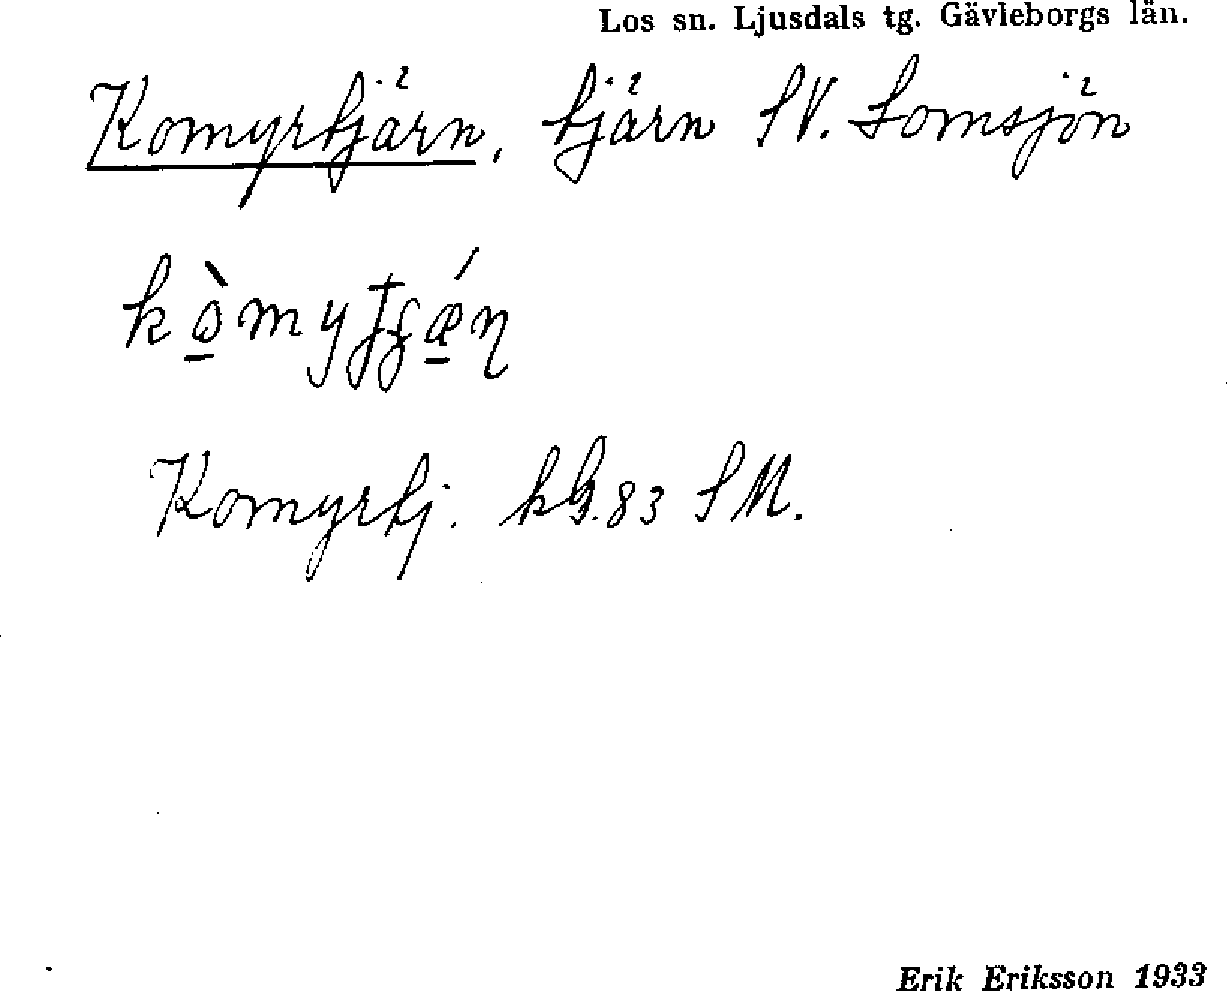 Los sn. Ljusdals tg. Gävleborgs län.
Komyrtjärn, tjärn SV. Lomsjön
Komyrtj. kG.83 SM.
Erik Eriksson 1933